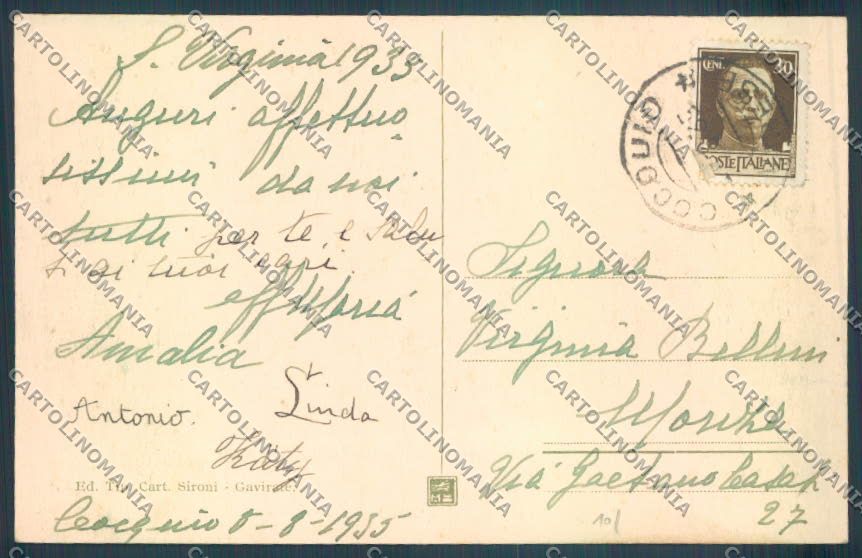 S. Virginia 1935
Auguri affettuo
sissimi da noi
tutti per te, e Salu
ti ai tuoi cari.
aff Maria
Amalia
Antonio. Linda
Katy
Ed. Tip. Cart. Sironi - Gavirate.
Cocquio 8-8-1935
CENT. 30
POSTE ITALIANE
COCQUIO
Signora
Virginia Bellini
Via Gaetano Casati
27
10/
CARTOLINOMANIA